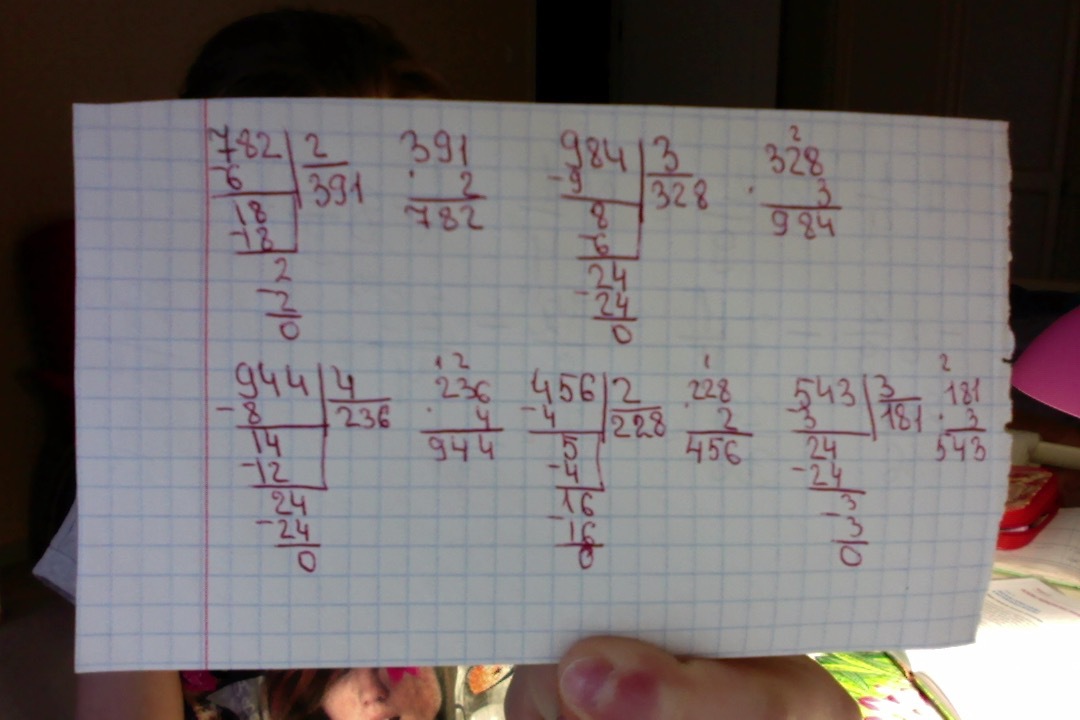 782 2 391 984 3 2 328
-6 391 · 2 -9 328 · 3
18 782 8 984
-18 -6
2 24
-2 -24
0 0
944 4 1 2 236 456 2 1 228 543 3 2 181
-8 236 · 4 -4 228 · 2 -3 181 · 3
14 944 5 456 24 543
-12 -4 -24
24 16 3
-24 -16 -3
0 0 0